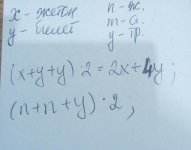 x - жетон
n - ж.
y - билет
m - б.
y - тр.
(x+y+y)·2=2x+4y;
(n+n+y)·2;